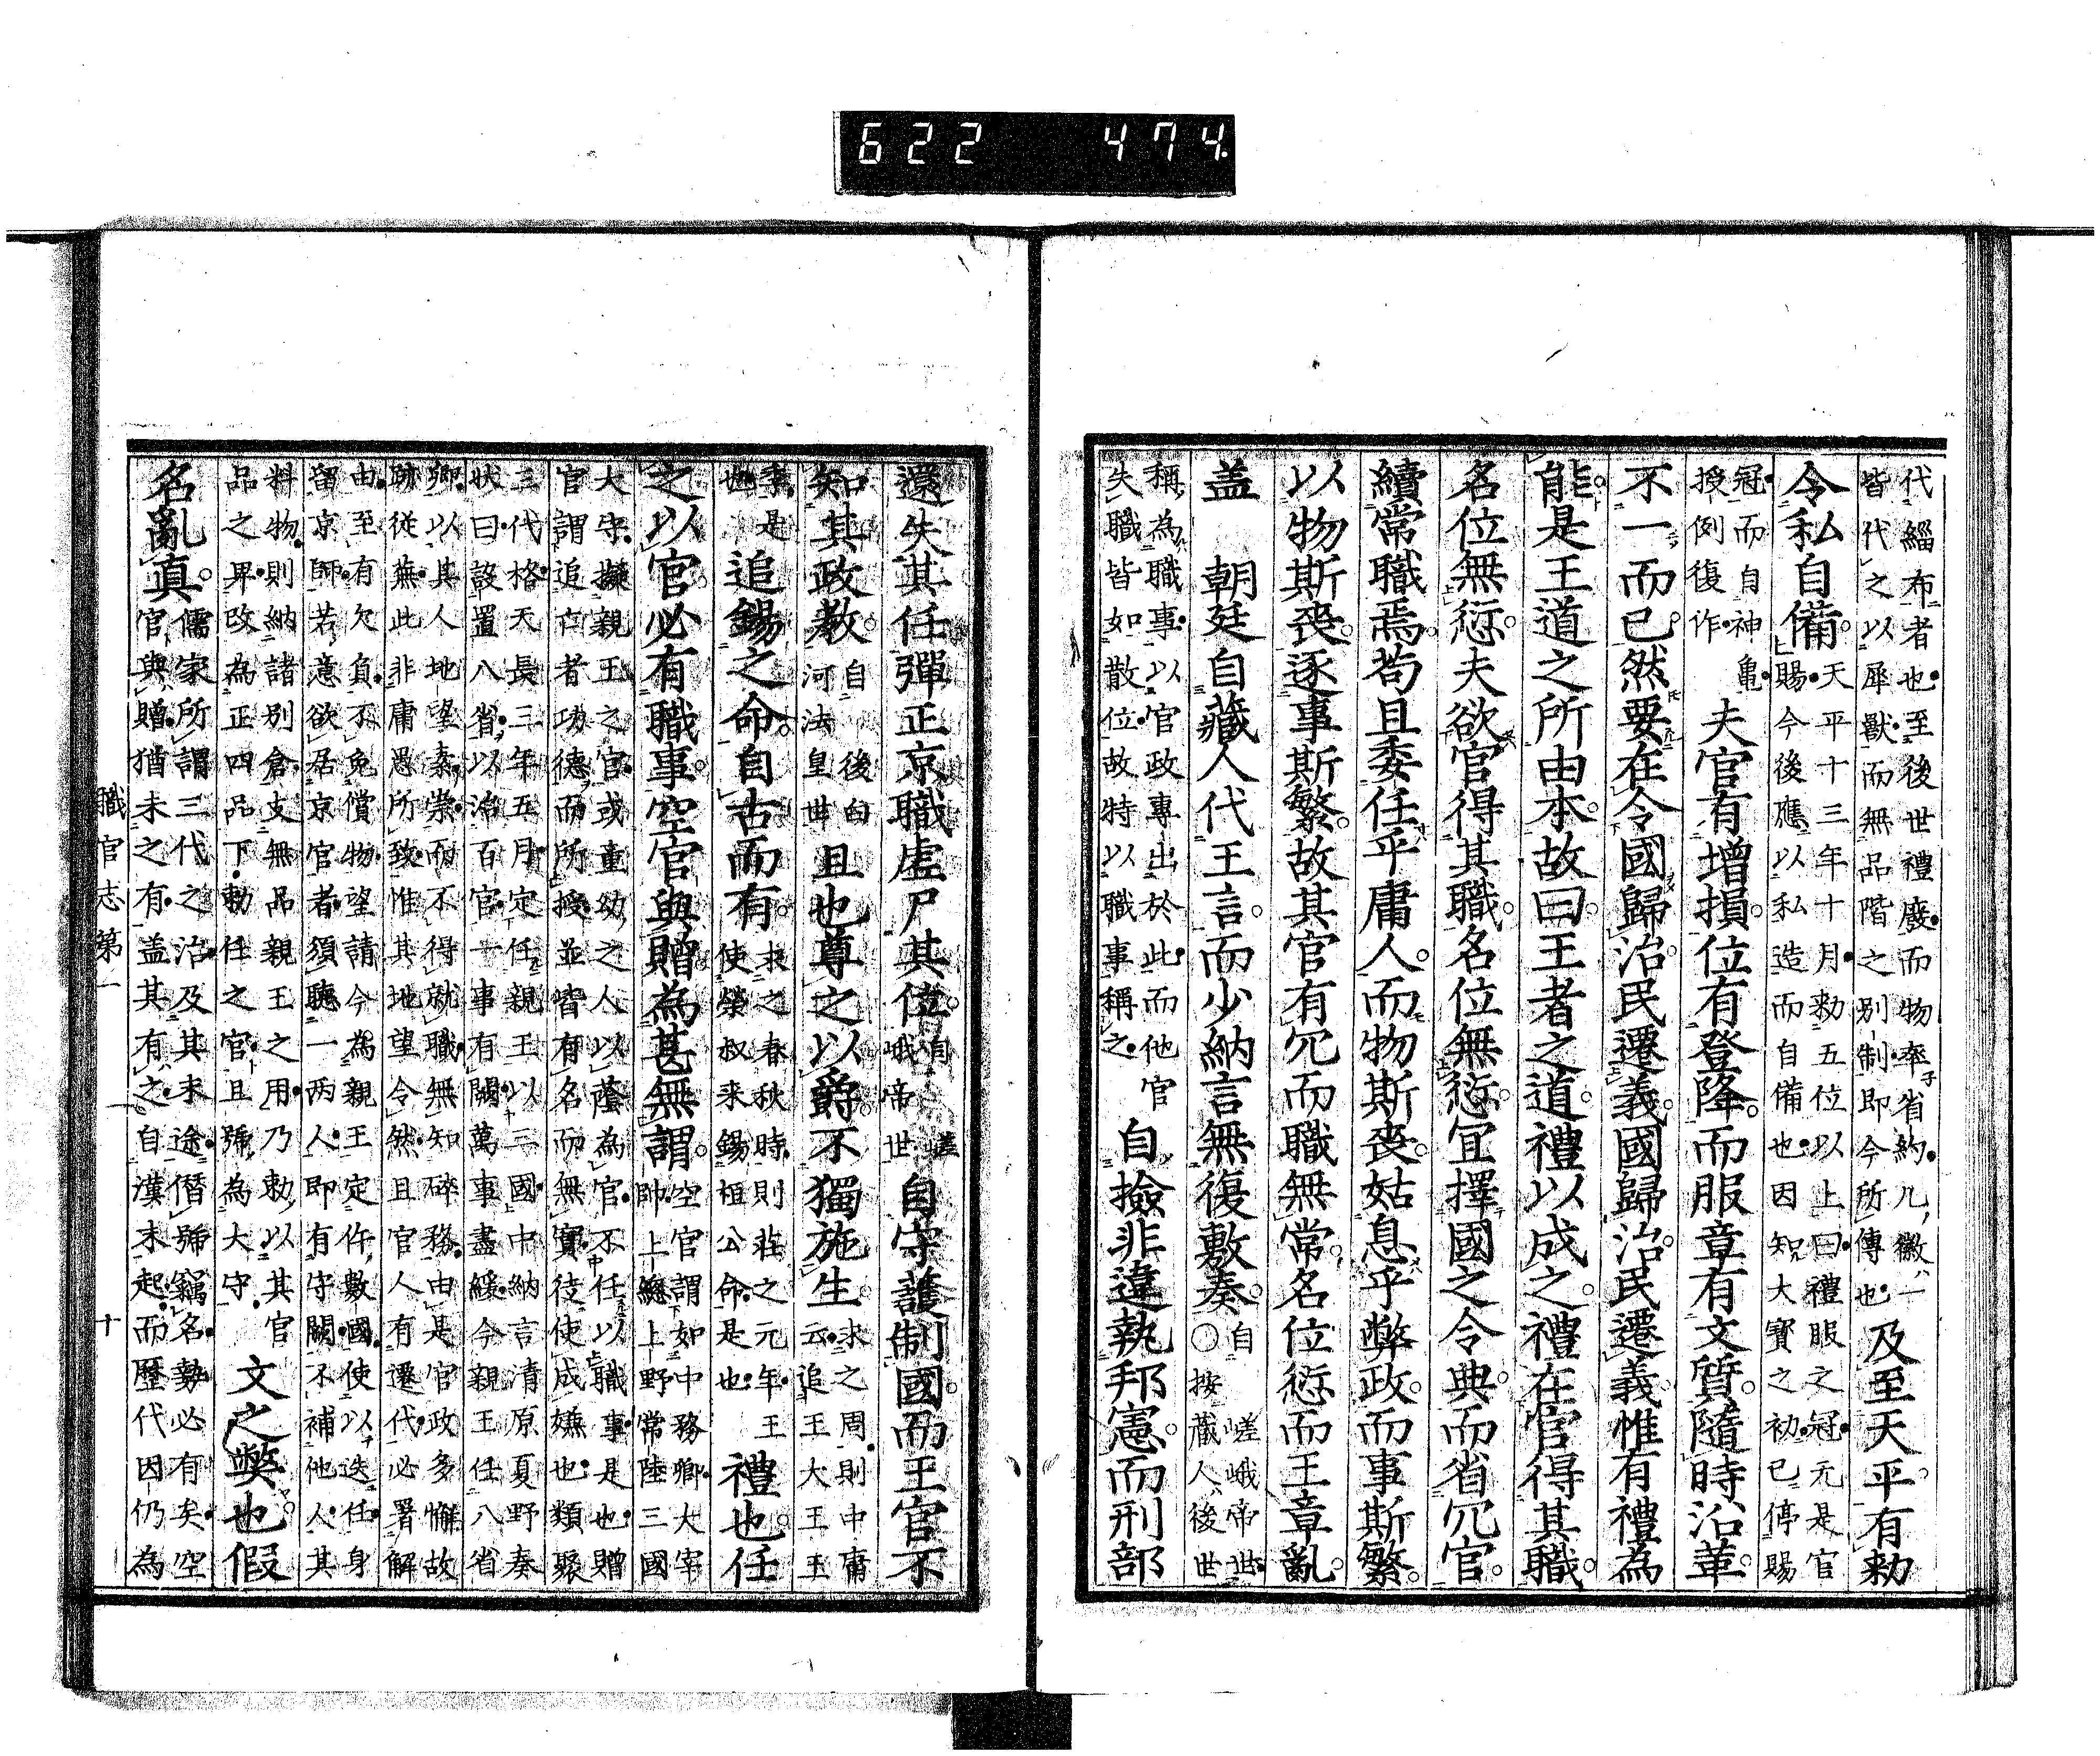 622 474.
代緇布者也至後世禮廢而物率省約凡徽一
皆代之以犀獸而無品階之別制即今所傳也 及至天平有勅
令私自備 天平十三年十月勅五位以上曰禮服之冠元是官
賜今後應以私造而自備也因知大寶之初已停賜
冠而自神龜
授例復作 夫官有增損位有登降而服章有文質隨時沿革
不一而已然要在令國歸治民遷義國歸治民遷義惟有禮為
能是王道之所由本故曰王者之道禮以成之禮在官得其職
名位無愆夫欲官得其職名位無愆宜擇國之令典而省冗官
續常職焉苟且委任乎庸人而物斯喪姑息乎弊政而事斯繁
以物斯喪逐事斯繁故其官有冗而職無常名位愆而王章亂
盖 朝廷自藏人代王言而少納言無復敷奏 自嵯峨帝世
○按藏人後世
稱為職事以官政專出於此而他官
失職皆如散位故特以職事稱之 自撿非違執邦憲而刑部
還失其任彈正京職虛尸其位 自嵯
峨帝世 自守護制國而王官不
知其政教 自後白
河法皇世 且也尊之以爵不獨施生 求之周則中庸
云追王大王王
季是
也 追錫之命自古而有 求之春秋時則莊之元年王
使榮叔来錫桓公命是也 禮也任
之以官必有職事空官與贈為甚無謂 空官謂如中務卿大宰
帥上總上野常陸三國
大守擬親王之官或童幼之人以蔭為官不任以職事是也贈
官謂追亡者功德而所授並皆有名而無實徒使成嫌也類聚
三代格天長三年五月定任親王以三國中納言清原夏野奏
狀曰設置八省以治百官一事有闕萬事盡緩今親王任八省
卿以其人地望素崇而不得就職無知碎務由是官政多懈故
跡從蕪此非庸愚所致惟其地望令然且官人有遷代必署解
由至有欠負不免償物望請今為親王定件數國使以迭任身
留京師若意欲居京官者須聽一两人即有守闕不補他人其
料物則納諸別倉支無品親王之用乃勅以其官
品之界改為正四品下勅任之官且號為大守 文之弊也假
名亂真 儒家所謂三代之治及其末途僭號竊名勢必有矣空
官與贈猶未之有盖其有之自漢末起而歷代因仍為
職官志第一 十